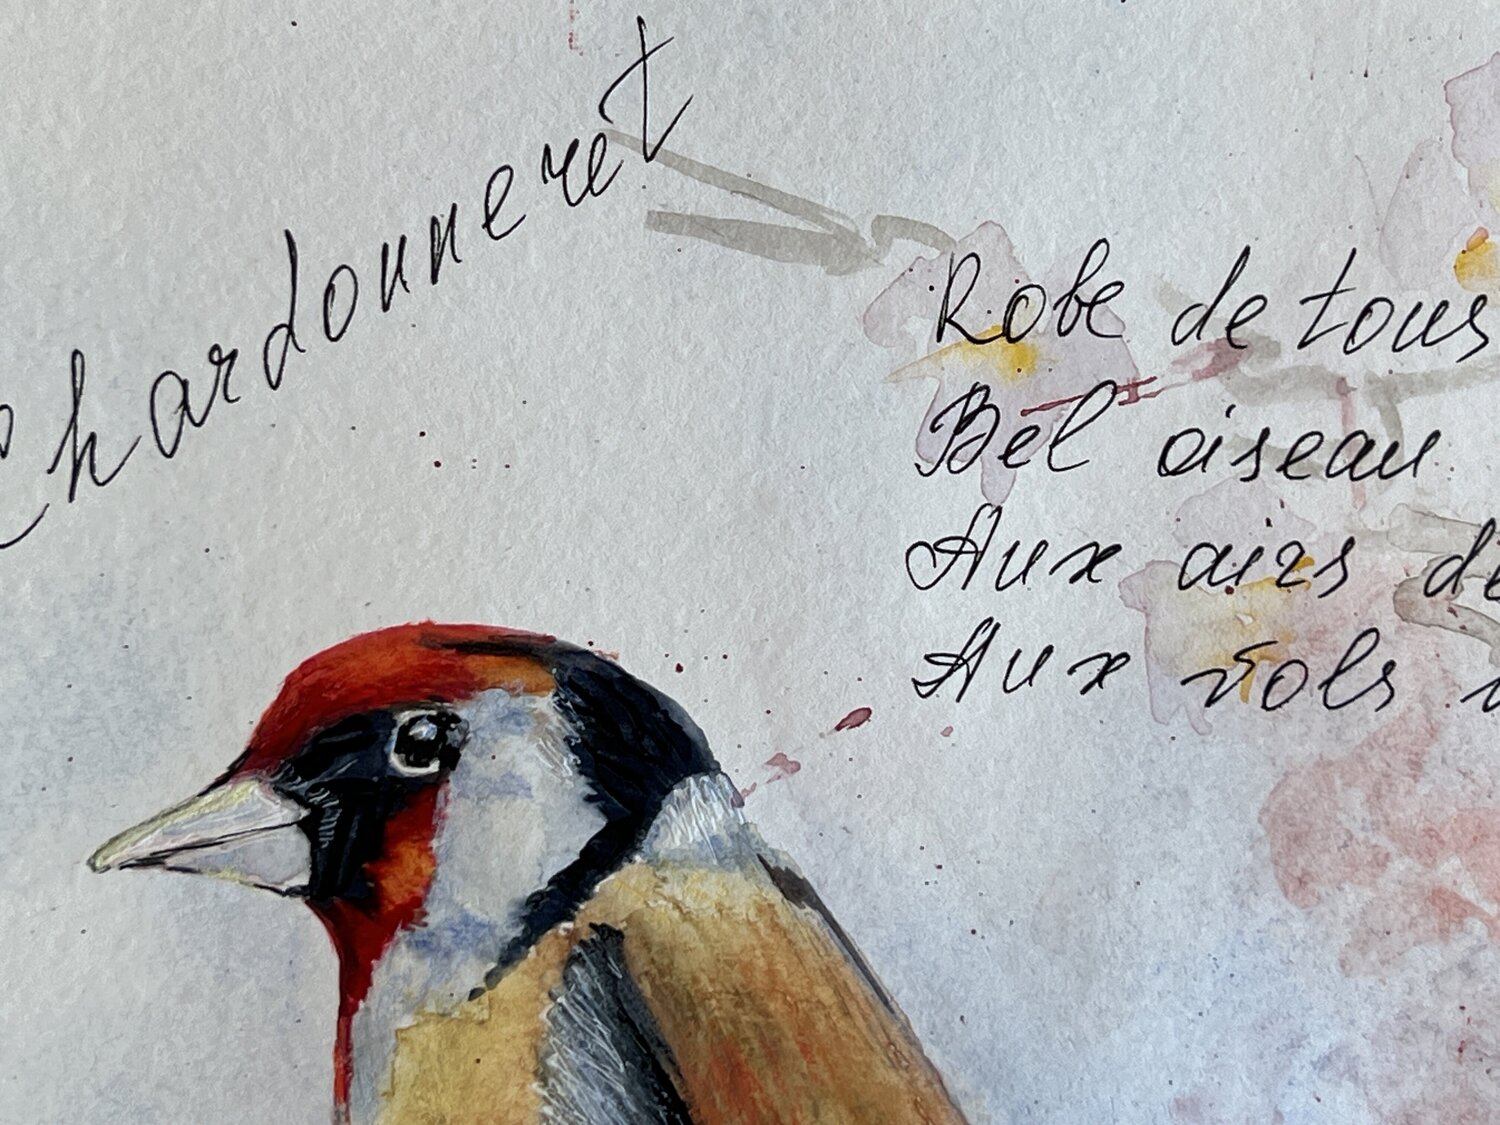 Chardonneret
Robe de tous
Bel oiseau
Aux airs
Aux vols